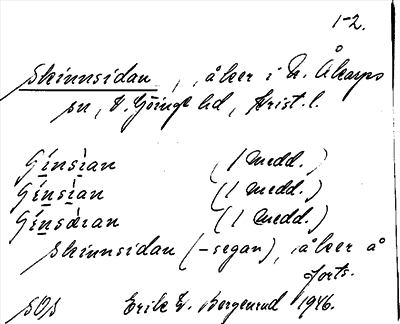 1-2.
Skinnsidan, , åker i N. Åkarps
sn, V. Göinge hd, Krist. l.
Ginsian (1 medd.)
Ginsian (1 medd.)
Ginsæian (1 medd.)
Skinnsidan (-segan), åker å
forts.
SOS Erik V. Bergenrud 1946.